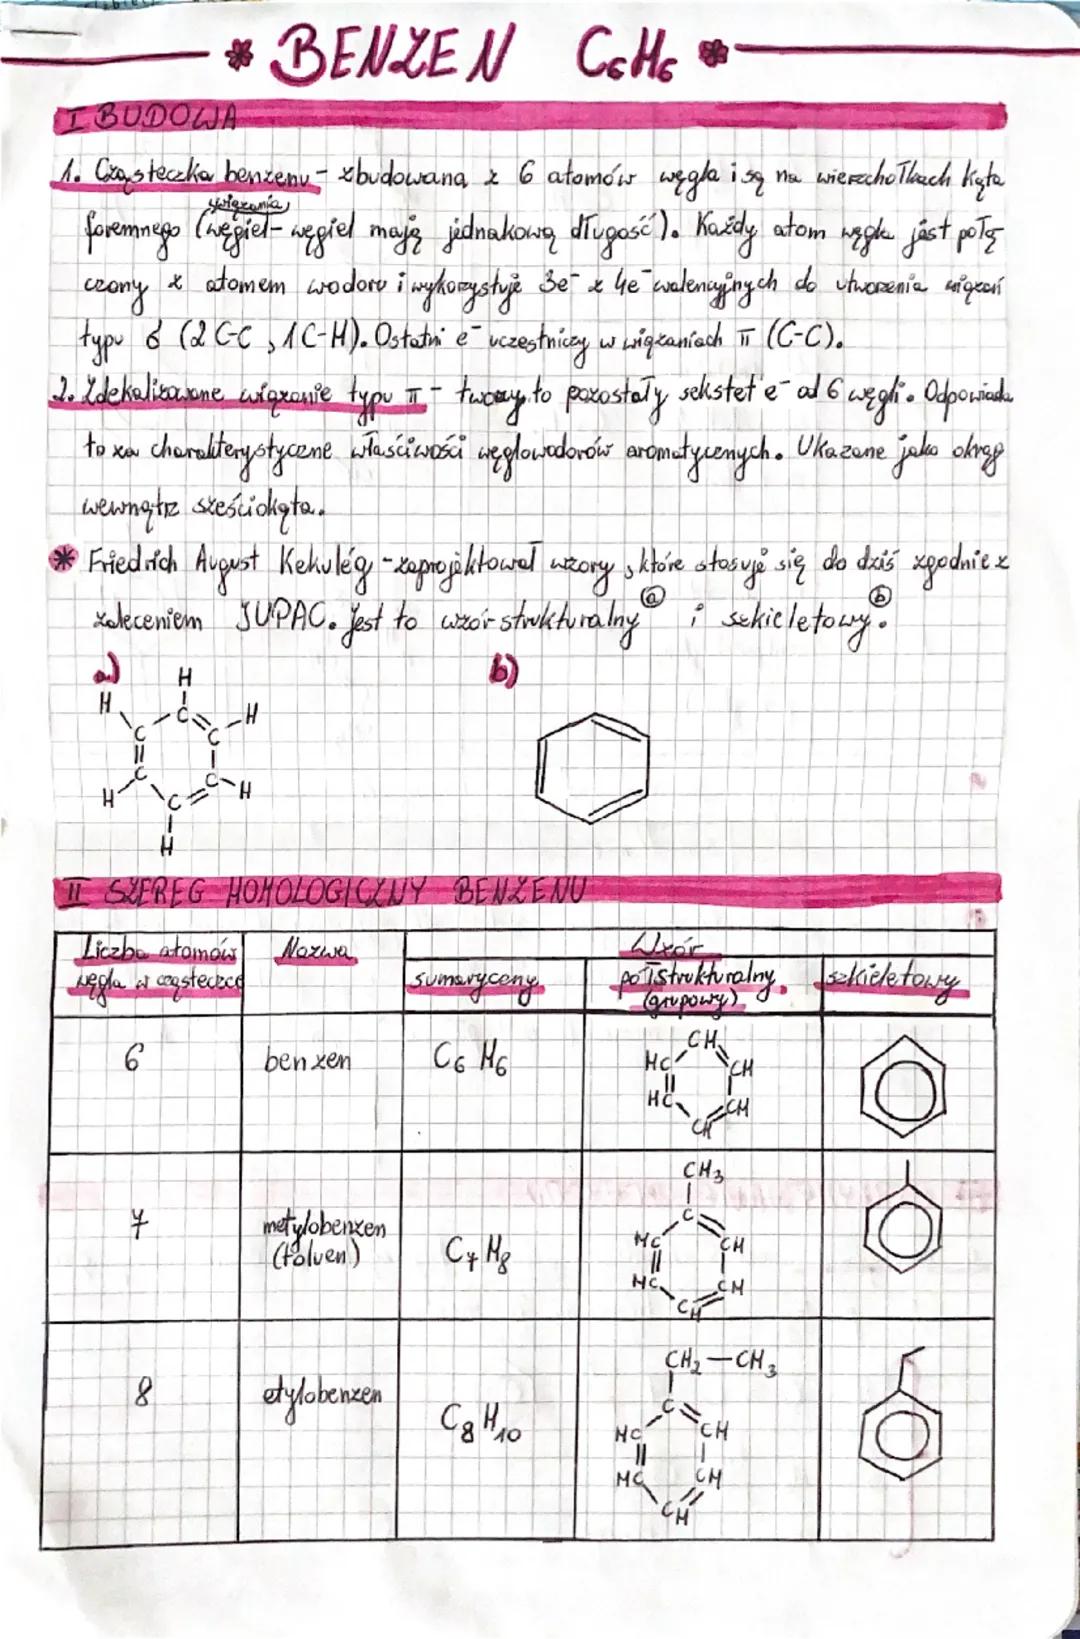 * BENZEN C₆H₆ *
I BUDOWA
1. Cząsteczka benzenu - zbudowana z 6 atomów węgla i są na wierzchołkach kąta
wiązania
foremnego (węgiel-węgiel mają jednakową długość). Każdy atom węgla jest połą
czony z atomem wodoru i wykorzystuje 3e⁻ z 4e⁻ walencyjnych do utworzenia wiązań
typu δ (2 C-C, 1 C-H). Ostatni e⁻ uczestniczy w wiązaniach π (C-C).
2. Zdekalizowane wiązanie typu π - tworzy to pozostały sekstet e⁻ od 6 węgli. Odpowiada
to za charakterystyczne właściwości węglowodorów aromatycznych. Ukazane jako okrąg
wewnątrz sześciokąta.
* Friedrich August Kekulég - zaprojektował wzory, które stosuje się do dziś zgodnie z
zaleceniem IUPAC. Jest to wzór strukturalny ⓐ i szkieletowy ⓑ.
a) b)
H
H C H
C C
C C
H C H
H
II SZEREG HOMOLOGICZNY BENZENU
Liczba atomów Nazwa Wzór
węgla w cząsteczce sumaryczny półstrukturalny szkieletowy
(grupowy)
6 benzen C₆H₆
CH
HC CH
HC CH
CH
7 metylobenzen
(toluen) C₇H₈
CH₃
C
HC CH
HC CH
CH
8 etylobenzen C₈H₁₀
CH₂-CH₃
C
HC CH
HC CH
CH